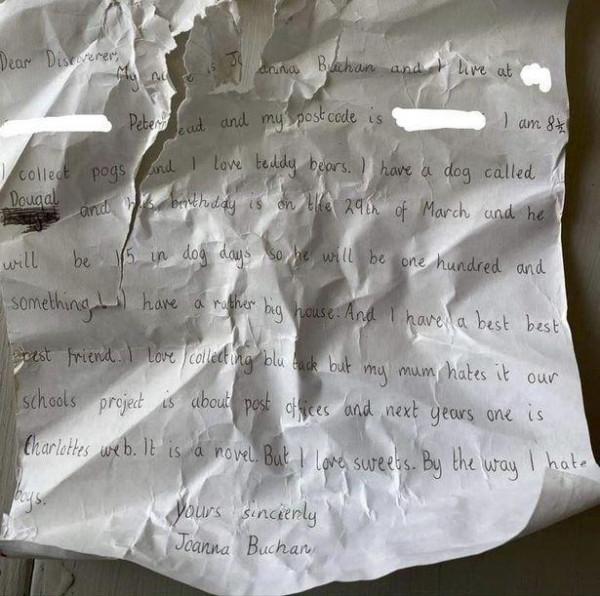 Dear Discoverer,
My na e is Jo anna Buchan and I live at
Peterh ead and my postcode is I am 8½
I collect pogs and I love teddy bears. I have a dog called
Dougal and his birthday is on the 29th of March and he
will be 15 in dog days so he will be one hundred and
something! I have a rather big house. And I have a best best
best friend. I love collecting blu tack but my mum hates it our
schools project is about post offices and next years one is
Charlottes web. It is a novel. But I love sweets. By the way I hate
boys.
Yours sincierly
Joanna Buchan